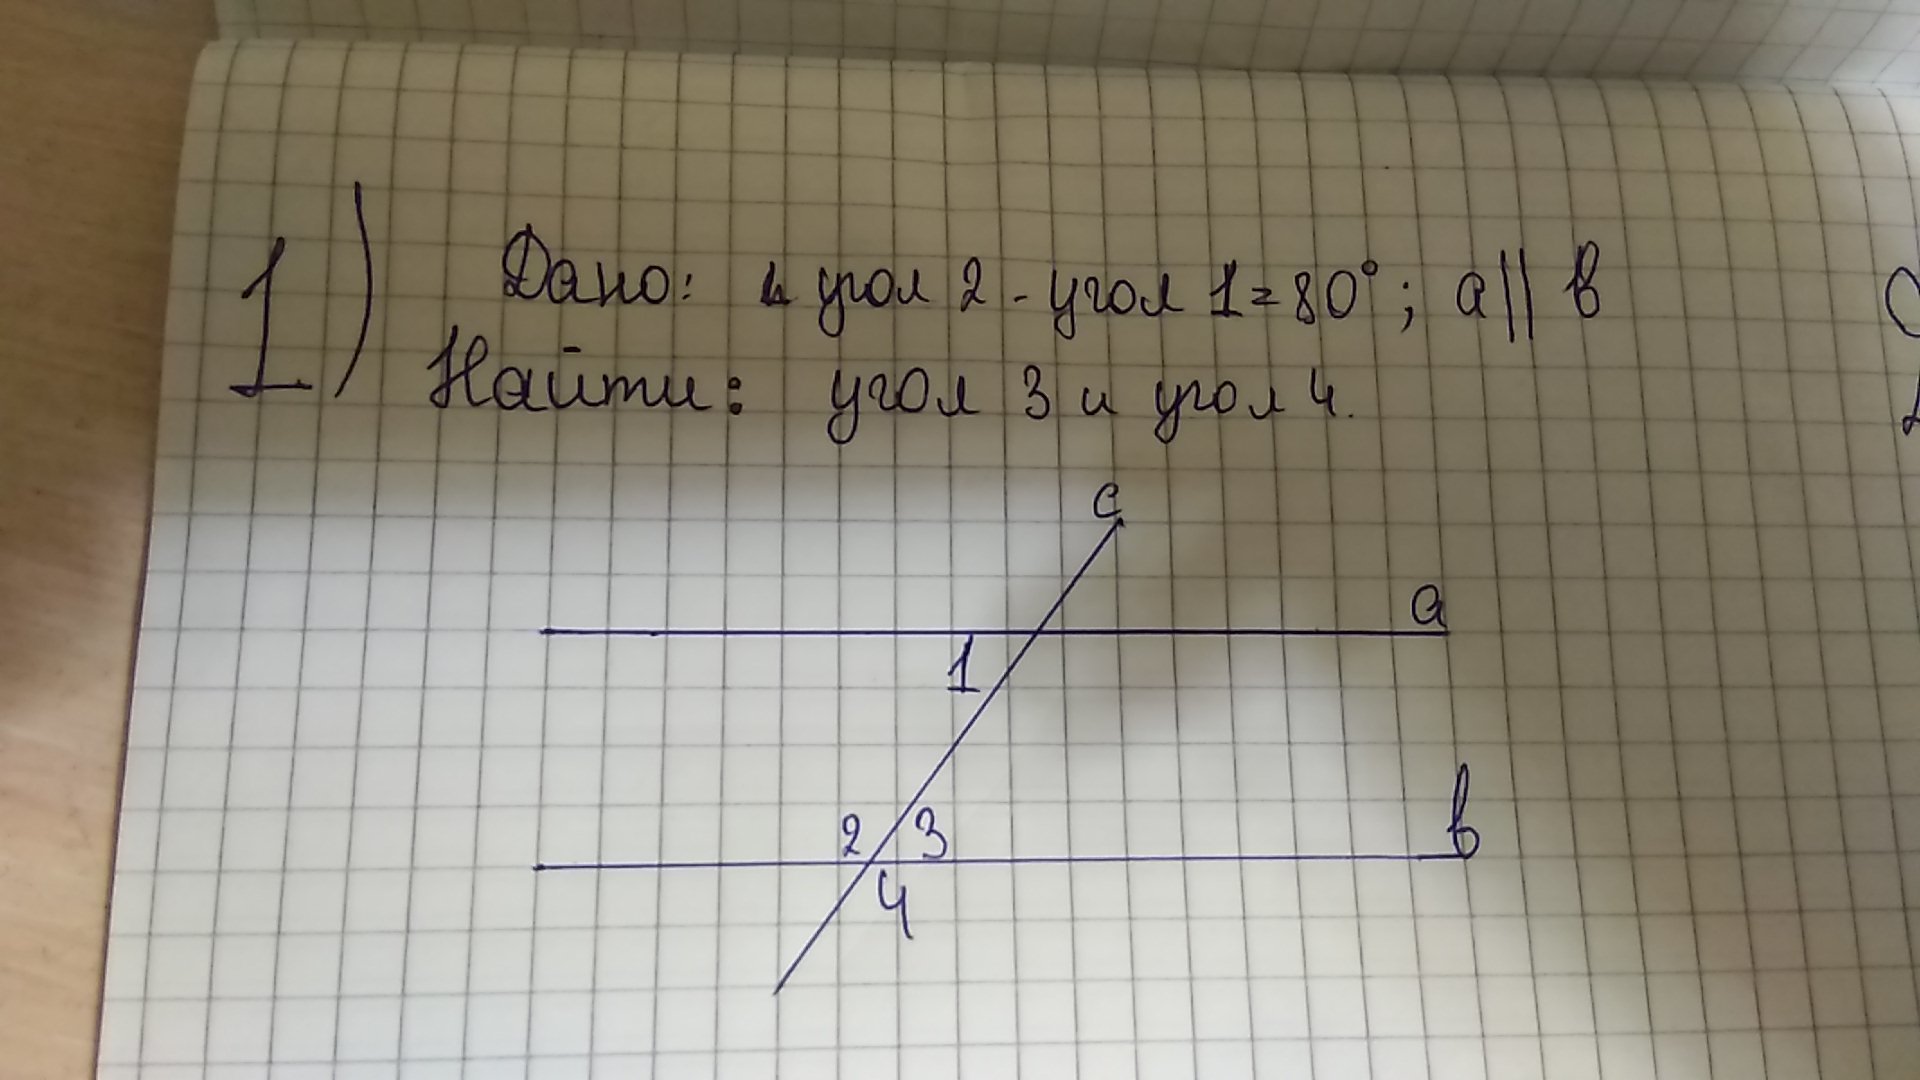 1) Дано: угол 2 - угол 1 = 80°; a || b
Найти: угол 3 и угол 4.
c
a
1
b
2 3
4